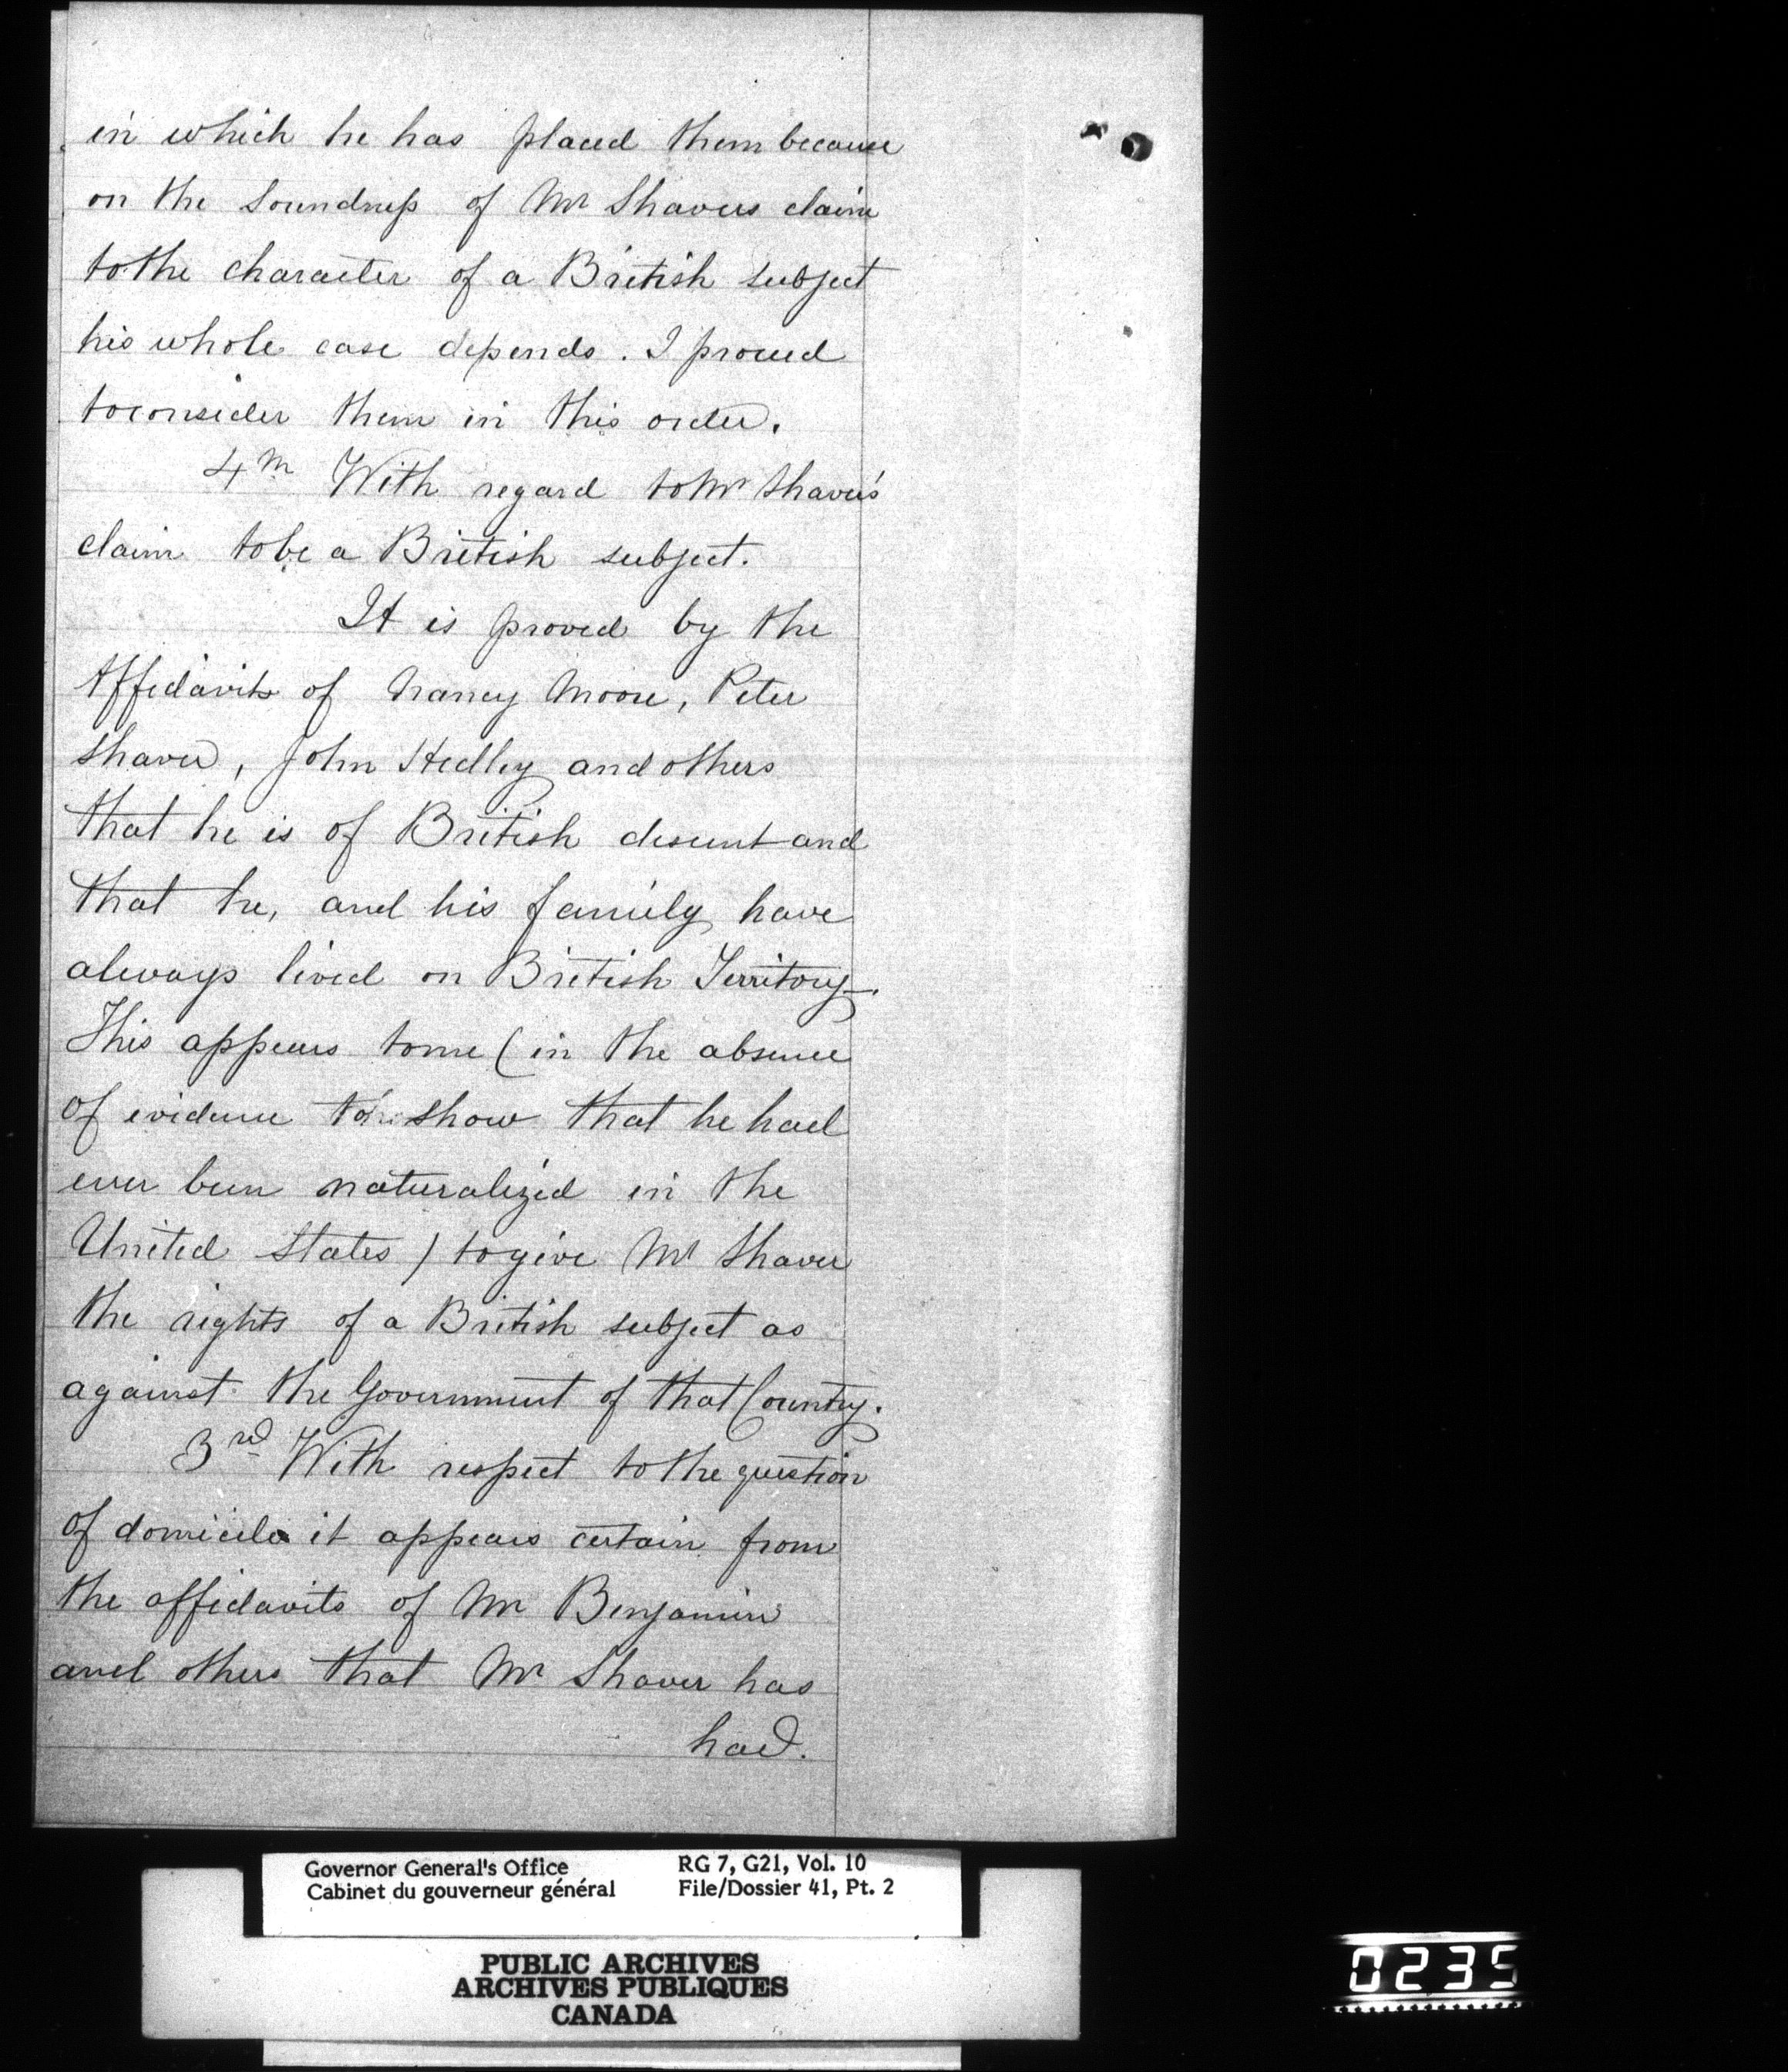 in which he has placed them because
on the Soundness of Mr Shavers claim
to the character of a British subject
his whole case depends. I proceed
to consider them in this order.
4th With regard to Mr Shaver's
claim to be a British subject.
It is proved by the
Affidavits of Nancy Moore, Peter
Shaver, John Hedley and others
that he is of British descent and
that he, and his family have
always lived on British Territory.
This appears to me (in the absence
of evidence to show that he had
ever been naturalized in the
United States) to give Mr Shaver
the rights of a British subject as
against the Government of that Country.
3rd With respect to the question
of domicile it appears certain from
the affidavits of Mr Benjamin
and others that Mr Shaver has
had.
Governor General's Office
Cabinet du gouverneur général
RG 7, G21, Vol. 10
File/Dossier 41, Pt. 2
PUBLIC ARCHIVES
ARCHIVES PUBLIQUES
CANADA
0235